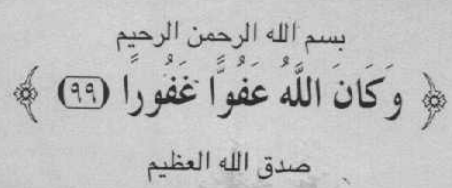 بسم الله الرحمن الرحيم
﴿ وَكَانَ اللَّهُ عَفُوًّا غَفُورًا (٩٩) ﴾
صدق الله العظيم